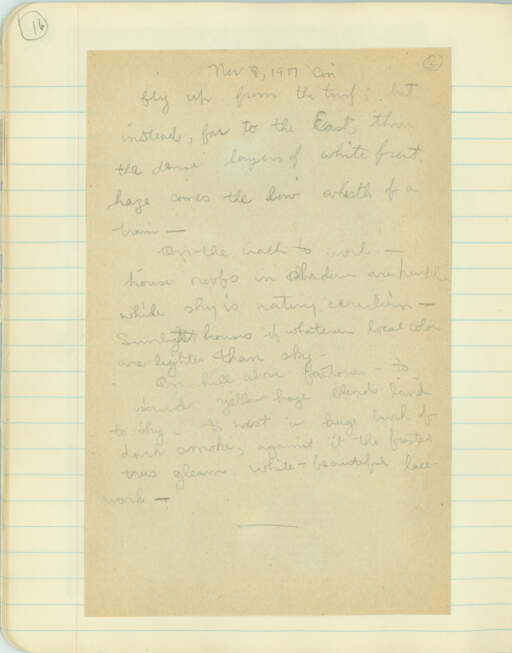 16
Nov 8, 1917 Con
fly up from the turf; but
instead, far to the East, thru
the dense layers of white frost
haze comes the low whistle of a
train —
On the walk to work —
house roofs in shadow are purple
while sky is watery cerulean —
Sunlight houses of whatever local color
are lighter than sky —
On hill above factories — to
yellow haze blends land
to sky — to west a huge bank of
dark smoke, against it the frosted
trees gleam white — beautiful lace
work —